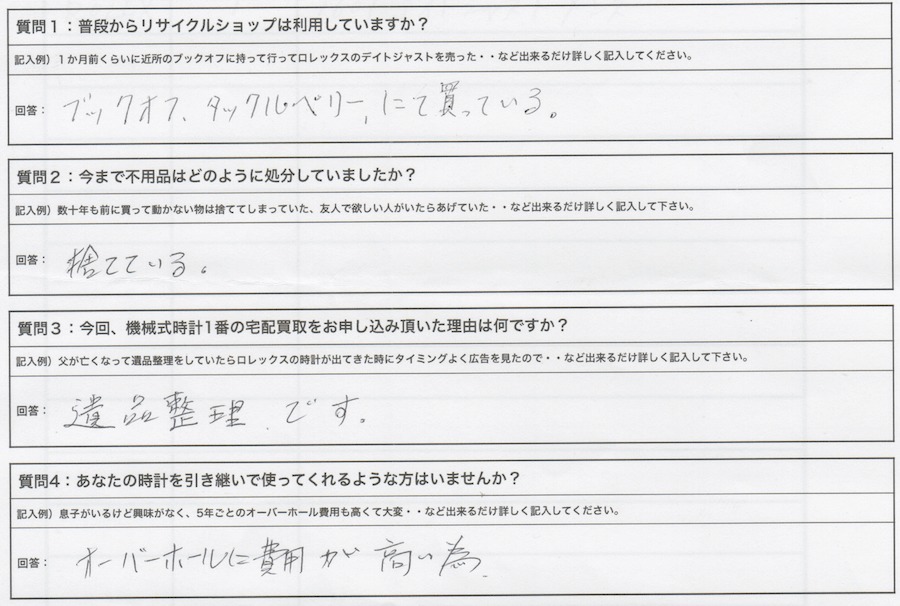 質問1：普段からリサイクルショップは利用していますか？
記入例）1か月前くらいに近所のブックオフに持って行ってロレックスのデイトジャストを売った・・など出来るだけ詳しく記入してください。
回答： ブックオフ、タックルベリー、にて買っている。
質問2：今まで不用品はどのように処分していましたか？
記入例）数十年も前に買って動かない物は捨ててしまっていた、友人で欲しい人がいたらあげていた・・など出来るだけ詳しく記入して下さい。
回答： 捨てている。
質問3：今回、機械式時計1番の宅配買取をお申し込み頂いた理由は何ですか？
記入例）父が亡くなって遺品整理をしていたらロレックスの時計が出てきた時にタイミングよく広告を見たので・・など出来るだけ詳しく記入して下さい。
回答： 遺品整理です。
質問4：あなたの時計を引き継いで使ってくれるような方はいませんか？
記入例）息子がいるけど興味がなく、5年ごとのオーバーホール費用も高くて大変・・など出来るだけ詳しく記入してください。
回答： オーバーホールに費用が高い為